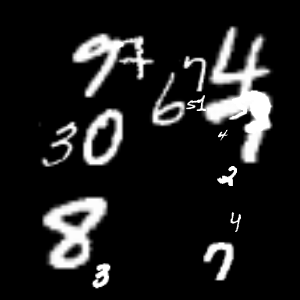 9 7 7 4
6 5 1
3 0 4 7
2
8 4
3 7